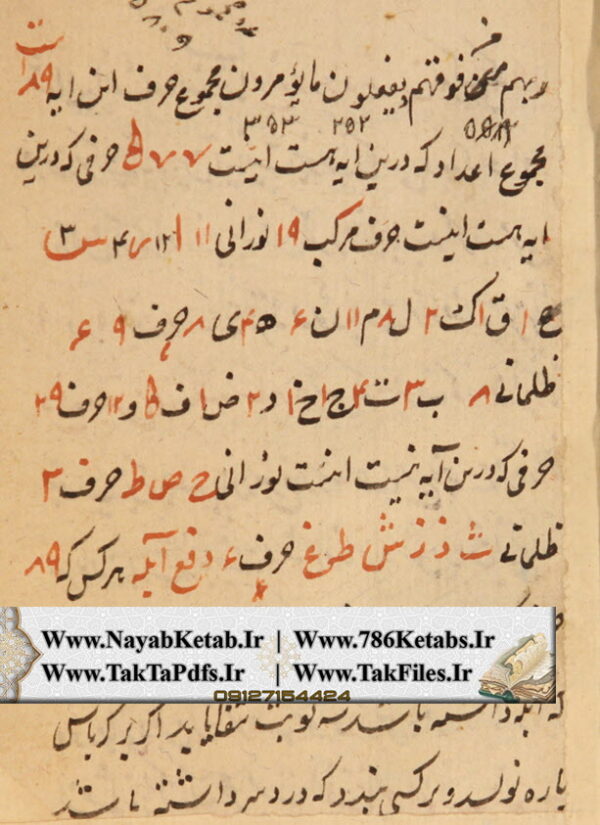 ربهم من فوقهم و یفعلون ما یؤمرون مجموع حرف این ایه ۸۹
۳۵۳ ۲۵۲
مجموع اعداد که درین ایه هست اینست ۷۷ حرفی که درین
ایه هست اینست حرف مرکب ۱۹ نورانی ۱۱ ا ۱۲ ر ۴ س ۳
ع ۱ ق ۱ ک ۲ ل ۸ م ۱۱ ن ۶ ه ۴ ی ۸ حرف ۶۹
ظلمانی ۸ ب ۳ ت ۴ ج ۱ خ ۱ د ۲ ض ۱ ف و ۱۲ حرف ۲۹
حرفی که درین آیه نیست اینست نورانی ح ص ط حرف ۳
ظلمانی ث ذ ز ش ظ غ حرف ۶ دفع آبله هر کس که ۸۹
Www.NayabKetab.Ir | Www.786Ketabs.Ir
Www.TakTaPdfs.Ir | Www.TakFiles.Ir
09127154424
که ابله داشته باشد سه نوبت شفا یابد اگر بر کرباس
پاره نویسد و بر کسی بندد که درد سر داشته باشد